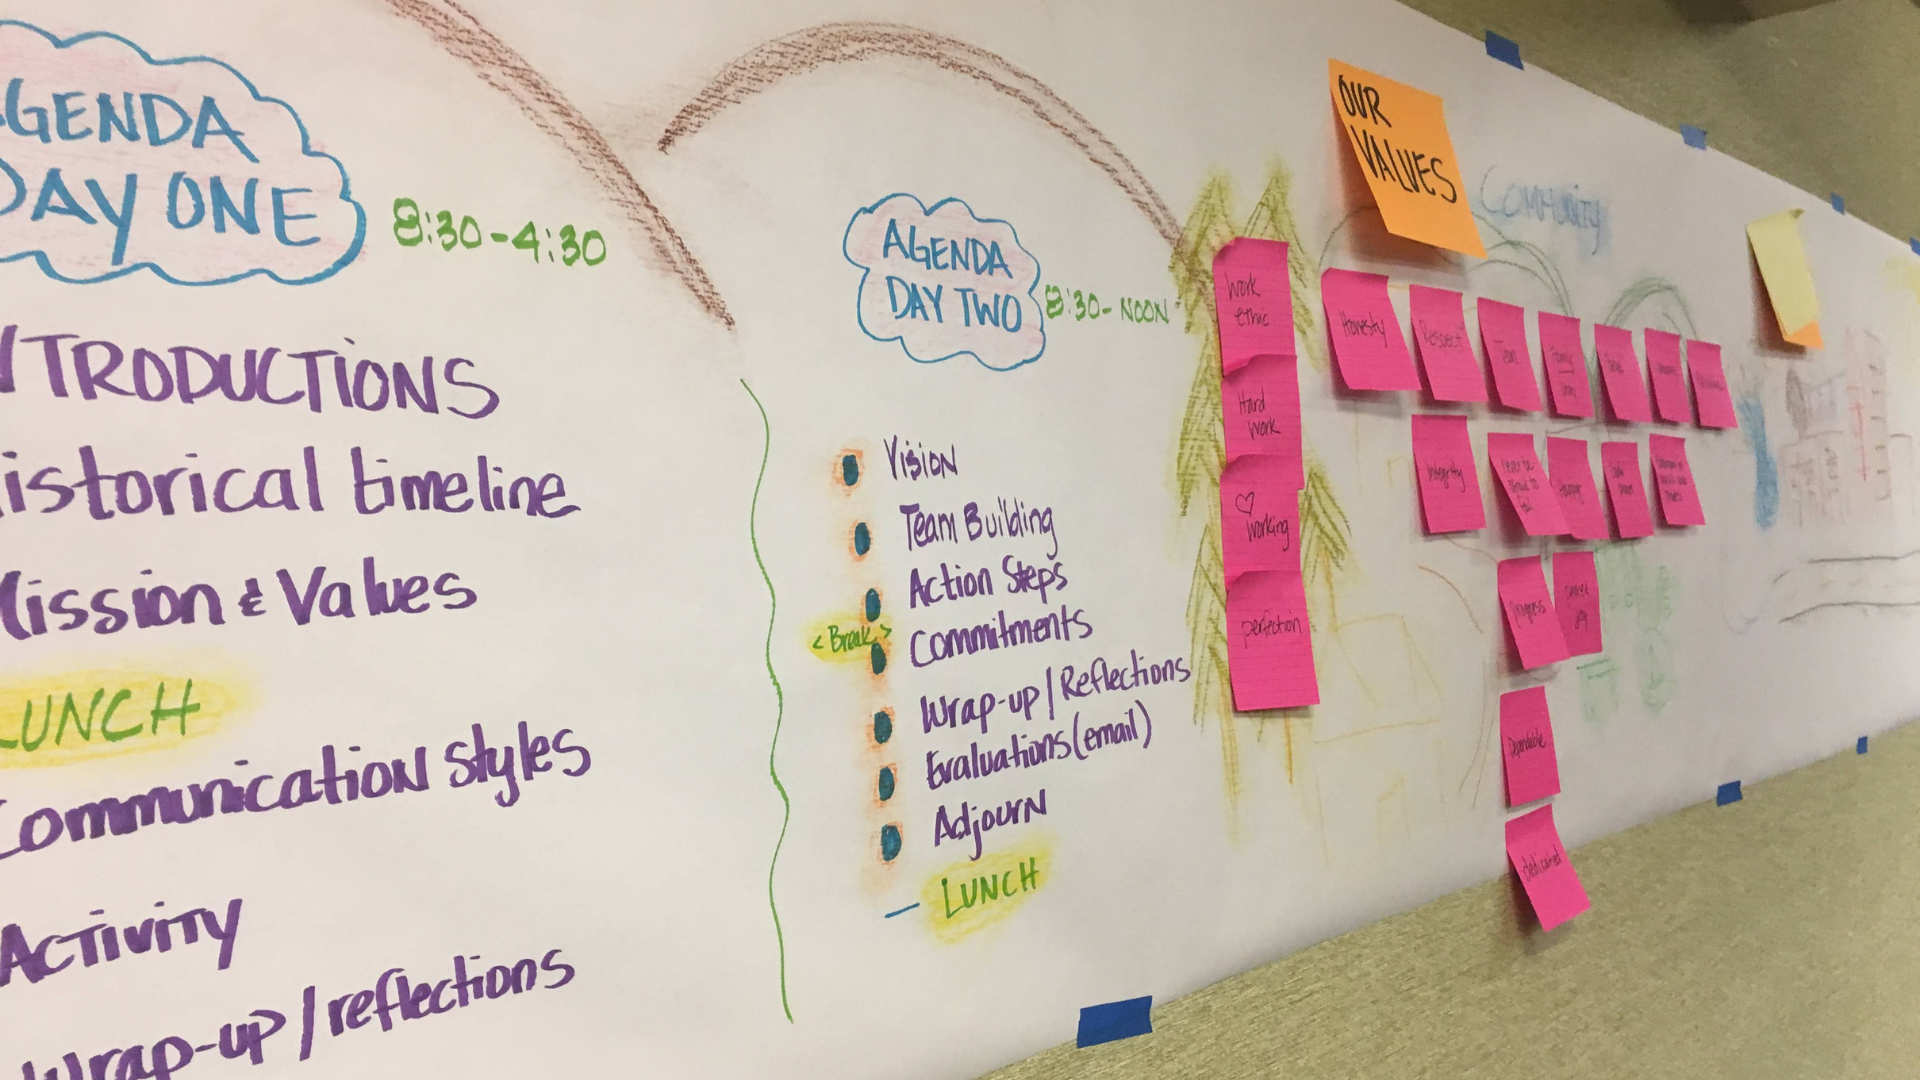 GENDA
DAY ONE
8:30-4:30
NTRODUCTIONS
istorical timeline
Mission & Values
LUNCH
Communication styles
Activity
Wrap-up/reflections
AGENDA
DAY TWO
8:30-NOON
Vision
Team Building
Action Steps
<Break>
Commitments
Wrap-up/Reflections
Evaluations (email)
Adjourn
LUNCH
OUR
VALUES
COMMUNITY
Work
ethic
Hard
Work
♡
working
perfection
Honesty
Respect
Team
Integrity
Happy
progress
Dependable
dedicated